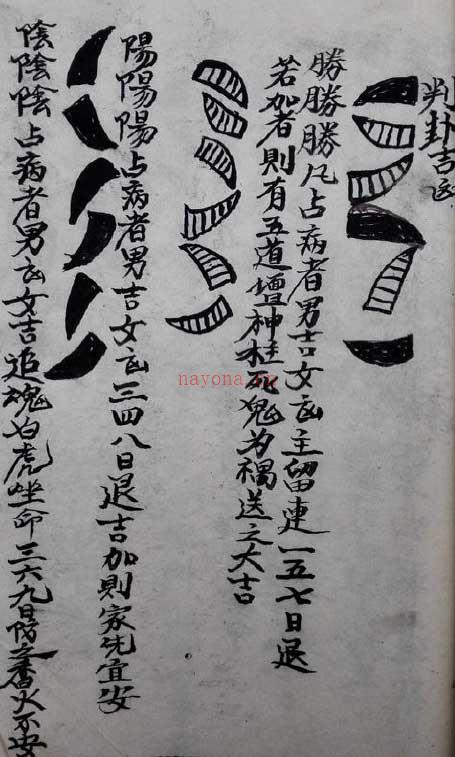 判卦吉凶
勝勝勝凡占病者男吉女凶主留連一五七日退
若加者則有五道壇神枉死鬼为禍送之大吉
陽陽陽占病者男吉女凶三四八日退吉加則家先宜安
陰陰陰占病者男凶女吉追魂白虎坐命三六九日防之香火不安
nayona.cn